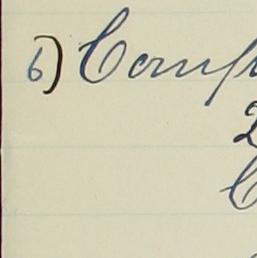 6) Comp
2
C